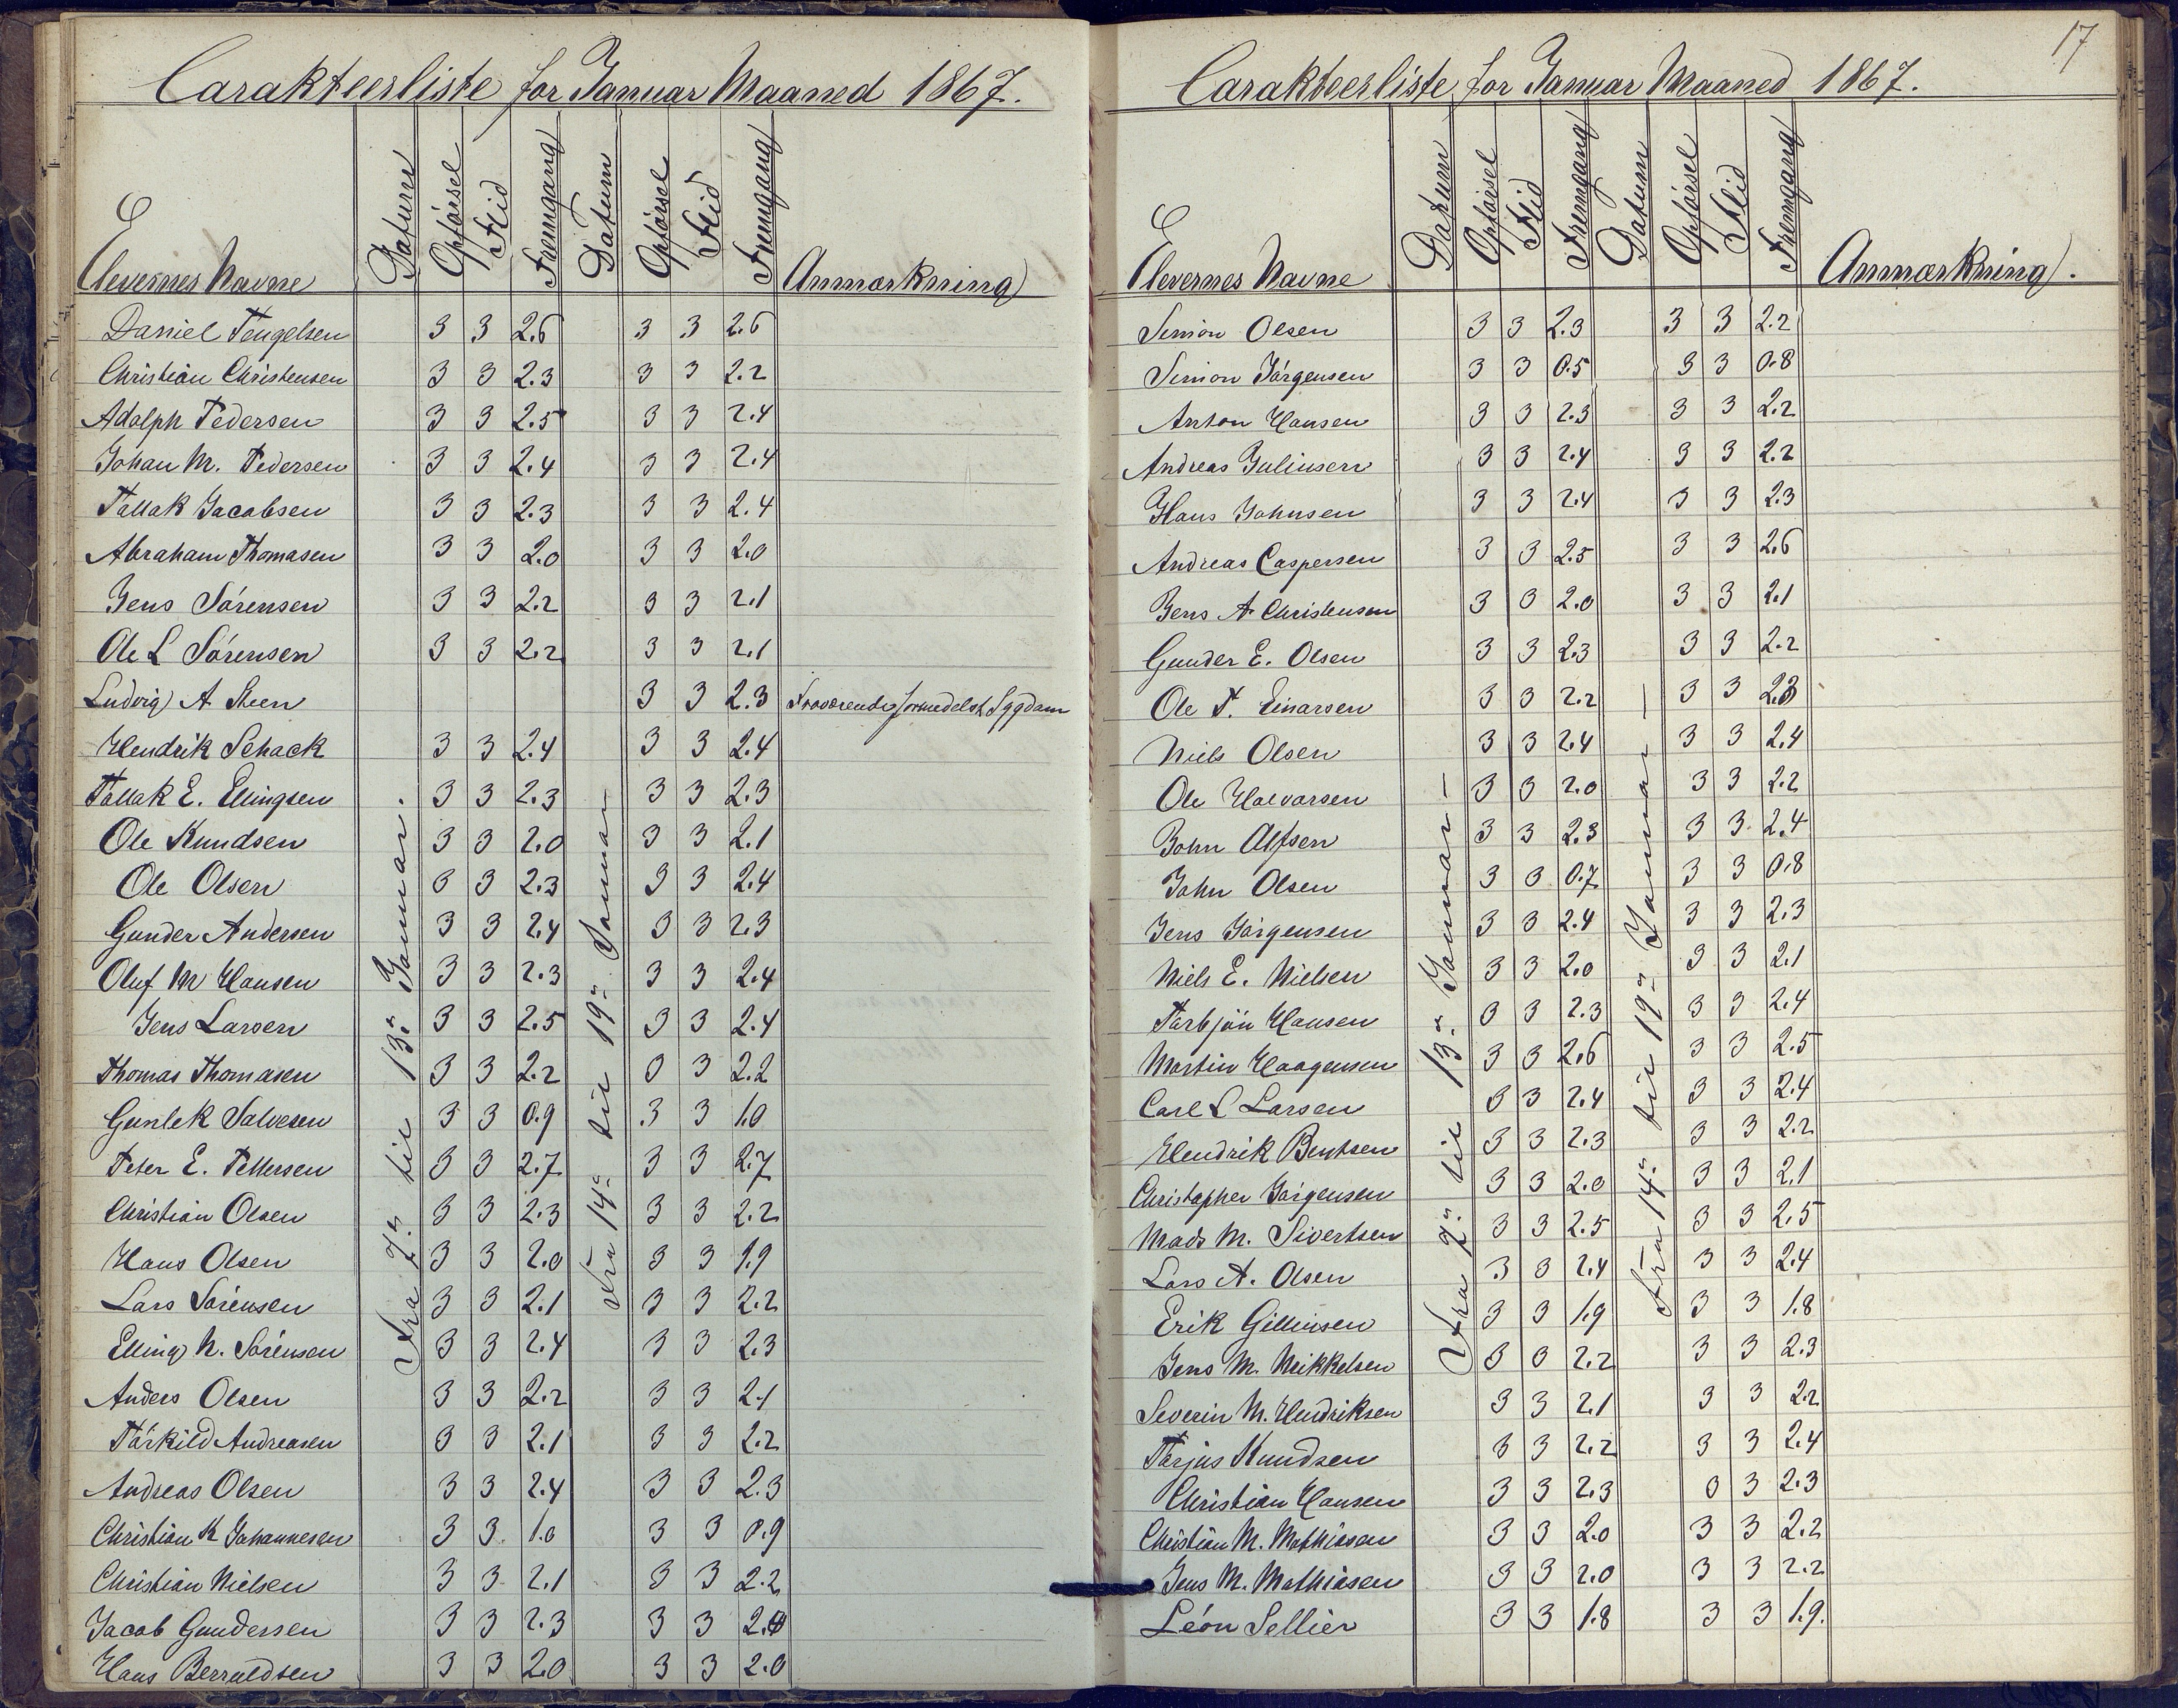 Carakteerliste for Januar Maaned 1867.
Elevernes Navne Datum Opførsel Flid Fremgang Datum Opførsel Flid Fremgang Anmærkning
Fra 7de til 13de Januar.
Fra 14de til 19de Januar
Daniel Tengelsen 3 3 2.6 3 3 2.6
Christian Christensen 3 3 2.3 3 3 2.2
Adolph Pedersen 3 3 2.5 3 3 2.4
Johan M. Pedersen 3 3 2.4 3 3 2.4
Tallak Jacobsen 3 3 2.3 3 3 2.4
Abraham Thomasen 3 3 2.0 3 3 2.0
Jens Sörensen 3 3 2.2 3 3 2.1
Ole L Sörensen 3 3 2.2 3 3 2.1
Ludvig A Steen 3 3 2.3 Fraværende formedelst Sygdom
Hendrik Schack 3 3 2.4 3 3 2.4
Tallak E. Ellingsen 3 3 2.3 3 3 2.3
Ole Knudsen 3 3 2.0 3 3 2.1
Ole Olsen 3 3 2.3 3 3 2.4
Gunder Andersen 3 3 2.4 3 3 2.3
Oluf M Hansen 3 3 2.3 3 3 2.4
Jens Larsen 3 3 2.5 3 3 2.4
Thomas Thomasen 3 3 2.2 3 3 2.2
Gunlek Salvesen 3 3 0.9 3 3 1.0
Peter E. Pettersen 3 3 2.7 3 3 2.7
Christian Olsen 3 3 2.3 3 3 2.2
Hans Olsen 3 3 2.0 3 3 1.9
Lars Sörensen 3 3 2.1 3 3 2.2
Elling N. Sörensen 3 3 2.4 3 3 2.3
Anders Olsen 3 3 2.2 3 3 2.1
Törkild Andreasen 3 3 2.1 3 3 2.2
Andreas Olsen 3 3 2.4 3 3 2.3
Christian K Johannesen 3 3 1.0 3 3 0.9
Christian Nielsen 3 3 2.1 3 3 2.2
Jacob Gundersen 3 3 2.3 3 3 2.4
Hans Berruldsen 3 3 2.0 3 3 2.0
17
Carakteerliste for Januar Maaned 1867.
Elevernes Navne Datum Opførsel Flid Fremgang Datum Opførsel Flid Fremgang Anmærkning.
Fra 7de til 13de Januar —
Fra 14de til 19de Januar —
Simon Olsen 3 3 2.3 3 3 2.2
Simon Jörgensen 3 3 0.5 3 3 0.8
Anton Hansen 3 3 2.3 3 3 2.2
Andreas Juliusen 3 3 2.4 3 3 2.2
Hans Johnsen 3 3 2.4 3 3 2.3
Andreas Caspersen 3 3 2.5 3 3 2.6
Jens A Christensen 3 3 2.0 3 3 2.1
Gunder E. Olsen 3 3 2.3 3 3 2.2
Ole T. Einarsen 3 3 2.2 3 3 2.3
Niels Olsen 3 3 2.4 3 3 2.4
Ole Halvorsen 3 3 2.0 3 3 2.2
John Alfsen 3 3 2.3 3 3 2.4
John Olsen 3 3 0.7 3 3 0.8
Jens Jörgensen 3 3 2.4 3 3 2.3
Niels E. Nielsen 3 3 2.0 3 3 2.1
Törbjön Hansen 3 3 2.3 3 3 2.4
Martin Haagensen 3 3 2.6 3 3 2.5
Carl L Larsen 3 3 2.4 3 3 2.4
Hendrik Bentsen 3 3 2.3 3 3 2.2
Christopher Jörgensen 3 3 2.0 3 3 2.1
Mads M. Sivertsen 3 3 2.5 3 3 2.5
Lars A. Olsen 3 3 2.4 3 3 2.4
Erik 3 3 1.9 3 3 1.8
Jens M. Mikkelsen 3 3 2.2 3 3 2.3
Severin M. Hendriksen 3 3 2.1 3 3 2.2
Terjus Knudsen 3 3 2.2 3 3 2.4
Christian Hansen 3 3 2.3 3 3 2.3
Christian M. Mathiasen 3 3 2.0 3 3 2.2
Jens M. Mathiasen 3 3 2.0 3 3 2.2
Léon Sellier 3 3 1.8 3 3 1.9.